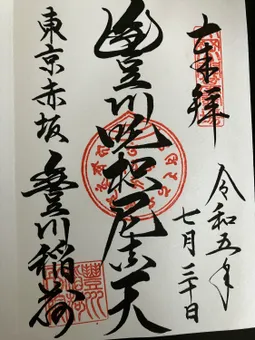 奉拝
令和五年
七月三十日
豊川吒枳尼真天
東京赤坂 豊川稲荷